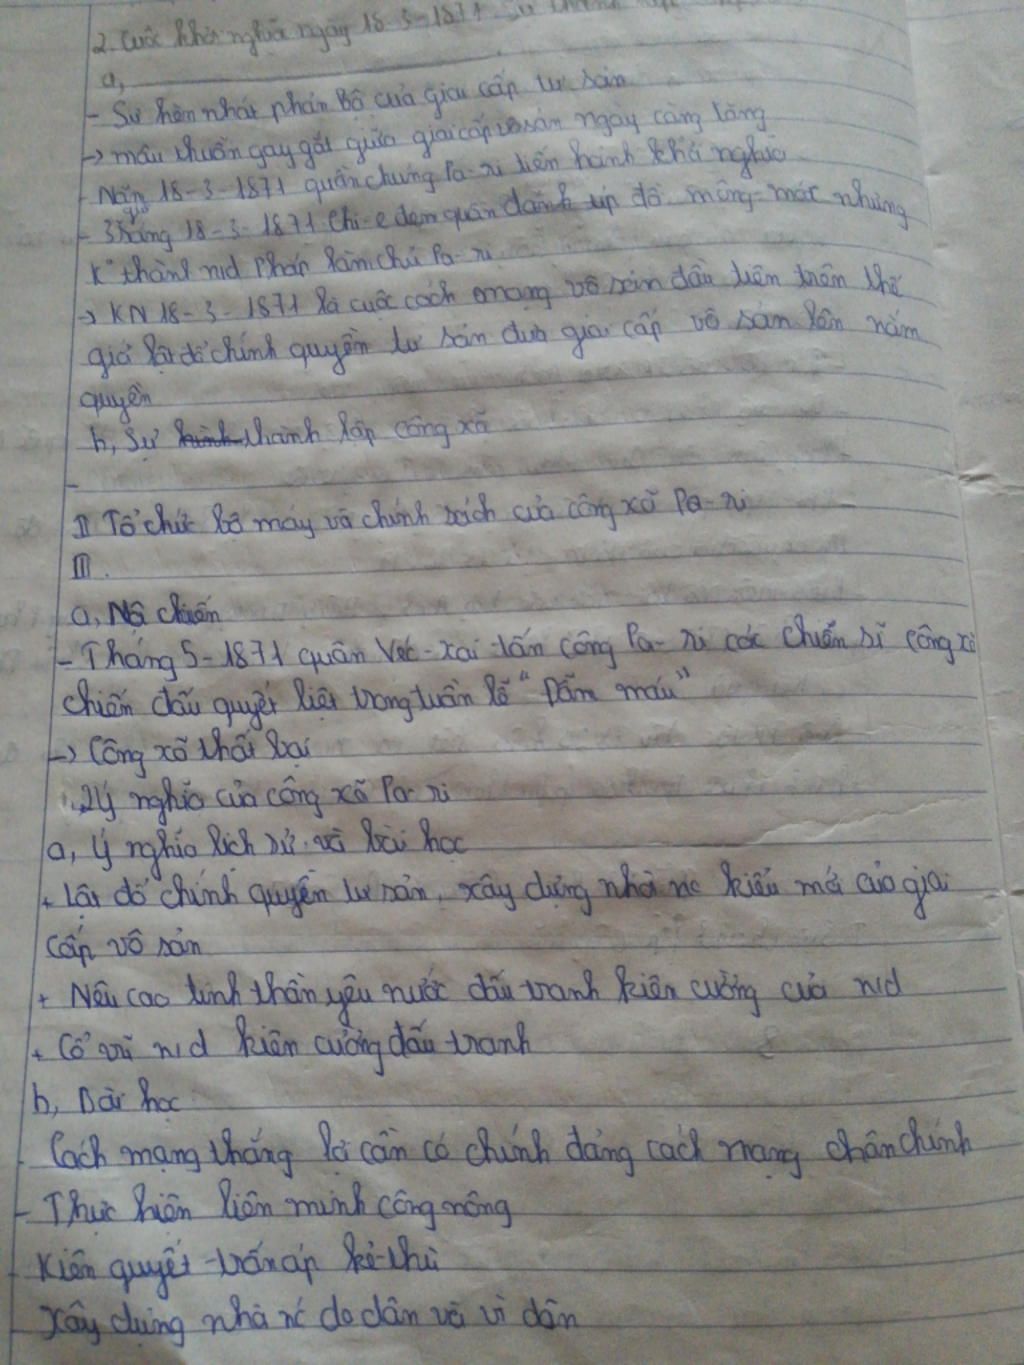 2. Cuộc khởi nghĩa ngày 18-3-1871. Sự thành lập
a,
- Sự hèn nhát phản bộ của giai cấp tư sản
-> mâu thuẫn gay gắt giữa giai cấp vô sản ngày càng tăng
- Ngày 18-3-1871 quần chúng Pa-ri tiến hành khởi nghĩa
- 3 Tháng 18-3-1871 Chi-e đem quân đánh úp đồ mông-mác nhưng
K° thành n/d Pháp làm chủ Pa-ri
-> KN 18-3-1871 là cuộc cách mạng vô sản đầu tiên trên thế
giới lật đổ chính quyền tư sản đưa giai cấp vô sản lên nắm
quyền
b, Sự hình thành lập công xã
-
II Tổ chức bộ máy và chính sách của công xã Pa-ri
III.
a, Nội chiến
- Tháng 5-1871 quân Véc-xai tấn công Pa-ri các chiến sĩ công xã
chiến đấu quyết liệt trong tuần lễ " Đẫm máu"
-> Công xã thất bại
2 Ý nghĩa của công xã Pa-ri
a, Ý nghĩa lịch sử và bài học
+ Lật đổ chính quyền tư sản, xây dựng nhà nc kiểu mới của giai
cấp vô sản
+ Nêu cao tinh thần yêu nước đấu tranh kiên cường của n/d
+ Cổ vũ n/d kiên cường đấu tranh
b, Bài học
- Cách mạng thắng lợi cần có chính đảng cách mạng chân chính
- Thực hiện liên minh công nông
- Kiên quyết trấn áp kẻ thù
- Xây dựng nhà nc do dân và vì dân